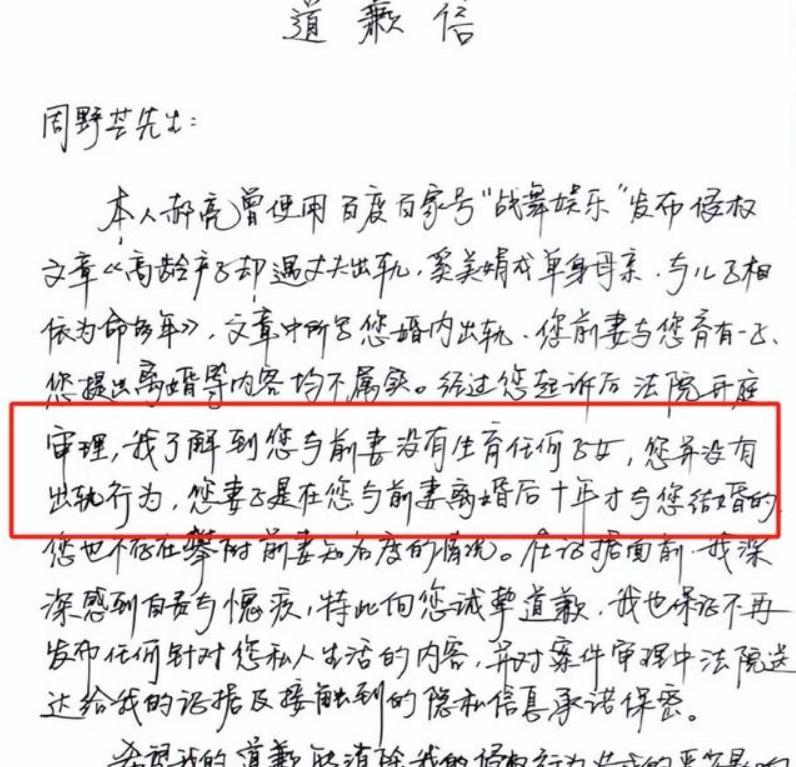 道歉信
周野芒先生：
本人郝亮曾使用百度百家号“战舞娱乐”发布侵权
文章《高龄产子却遇丈夫出轨，奚美娟成单身母亲，与儿子相
依为命多年》，文章中所写您婚内出轨、您前妻与您育有一子、
您提出离婚等内容均不属实。经过您起诉后法院开庭
审理，我了解到您与前妻没有生育任何子女，您并没有
出轨行为，您妻子是在您与前妻离婚后十年才与您结婚的，
您也不存在攀附前妻知名度的情况。在证据面前，我深
深感到自责与愧疚，特此向您诚挚道歉，我也保证不再
发布任何针对您私人生活的内容，并对案件审理中法院送
达给我的证据及接触到的隐私信息承诺保密。
希望我的道歉能消除我的侵权行为造成的严重影响